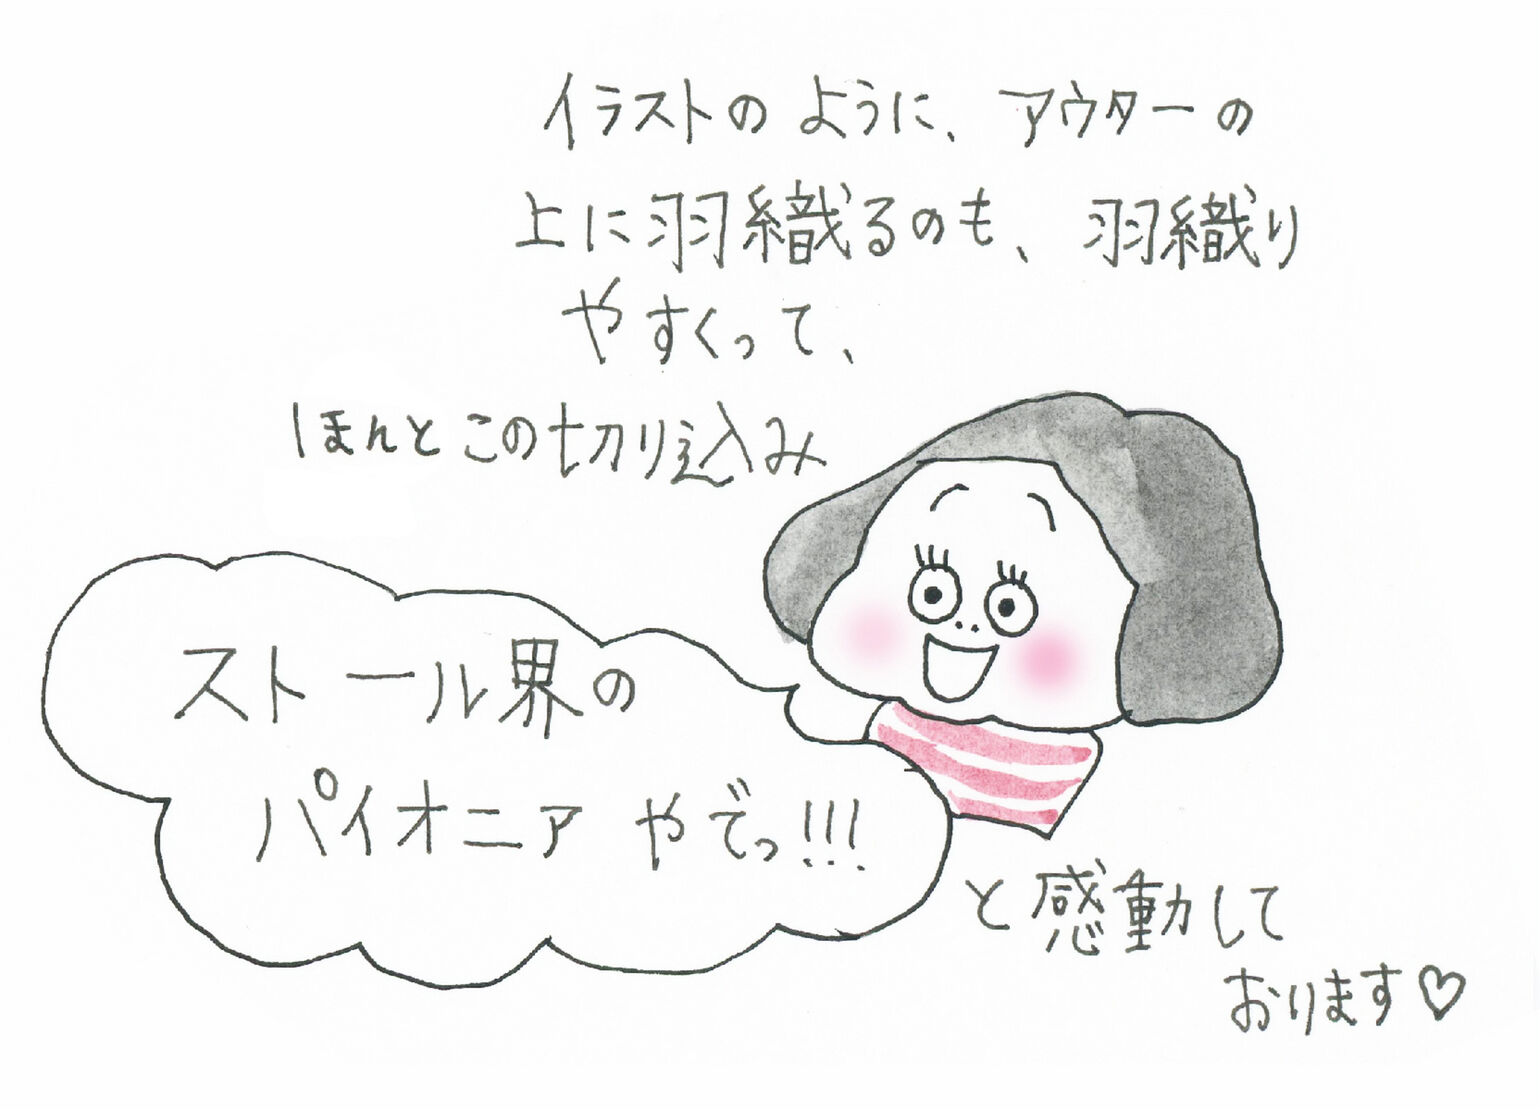 イラストのように、アウターの
上に羽織るのも、羽織り
やすくって、
ほんとこの切り込み
ストール界の
パイオニアやでっ!!!
と感動して
おります♡